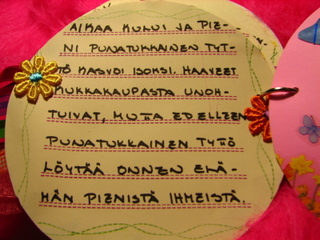 AIKAA KULUI JA PIE-
NI PUNATUKKAINEN TYT-
TÖ KASVOI ISOKSI. HAAVEET
KUKKAKAUPASTA UNOH-
TUIVAT, MUTTA EDELLEEN
PUNATUKKAINEN TYTTÖ
LÖYTÄÄ ONNEN ELÄ-
MÄN PIENISTÄ IHMEISTÄ.